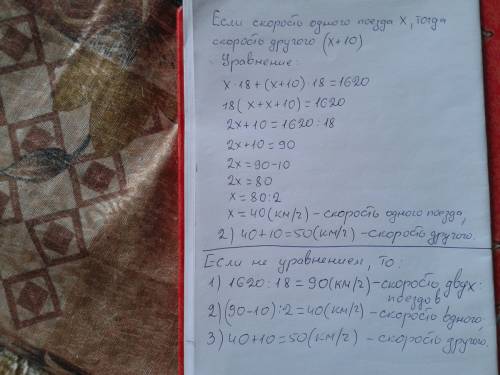 Если скорость одного поезда x, тогда
скорость другого (x+10)
Уравнение:
x·18+(x+10)·18=1620
18(x+x+10)=1620
2x+10=1620:18
2x+10=90
2x=90-10
2x=80
x=80:2
x=40(км/г)-скорость одного поезда,
2) 40+10=50(км/г)-скорость другого.
Если не уравнением, то:
1) 1620:18=90(км/г)-скорость двух
поездов
2) (90-10):2=40(км/г)-скорость одного,
3) 40+10=50(км/г)-скорость другого.